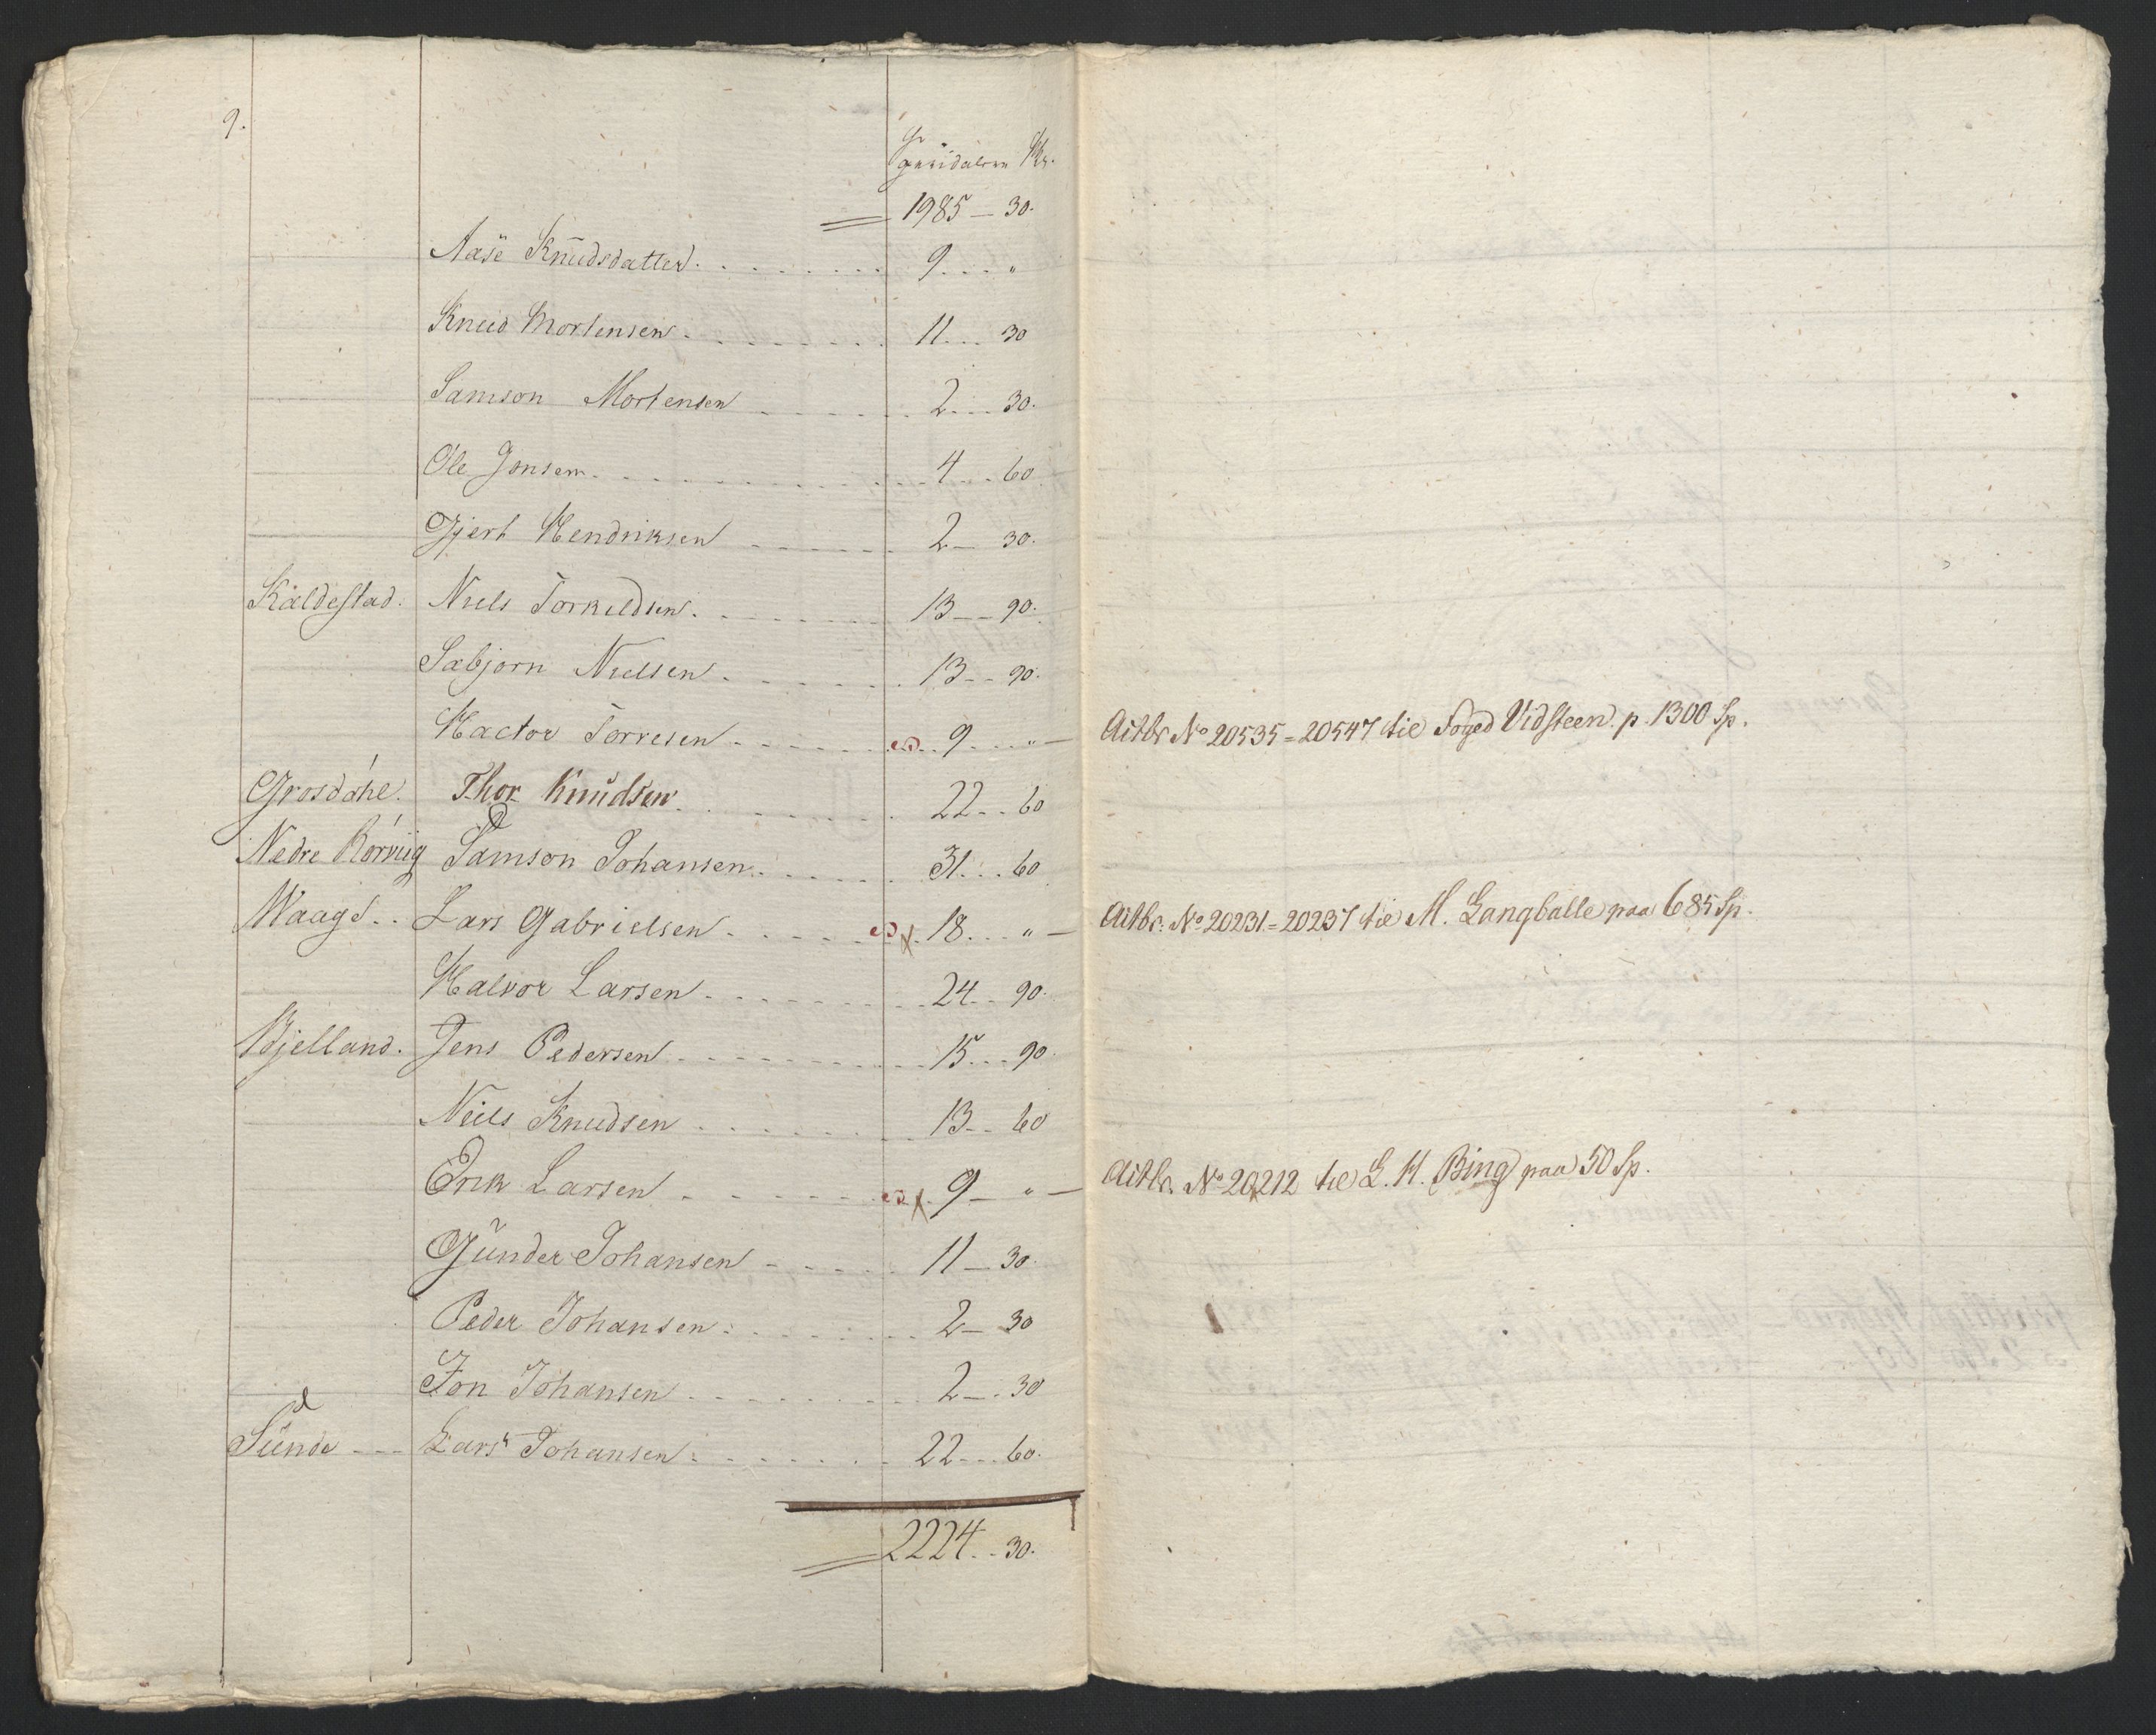 9.
1985 — 30.
Aase Knudsdatter. 9 "
Knud Mortensen. 11 30
Samson Mortensen 2 30.
Ole Jonsen. 4 60
Gjert Hendriksen 2 — 30.
Kældestad. Niels Torkildsen. 13 — 90.
Sæbjørn Nielsen. 13 — 90.
Hactor Torresen 9 " — Actbr No 20535 = 20547 til Foged Vidsteen. p. 1300 Sp.
Grosdahl. Thor Knudsen. 22 60
Nedre Rörviig Samson Johansen. 31 60
Waage. Lars Gabrielsen. 18 " — Actbr. No 20231 = 20237 til M. Langballe paa 685 Sp.
Halvor Larsen. 24 90.
Bjelland. Jens Pedersen 15 90.
Niels Knudsen 13 60
Erik Larsen 9 — " — Actbr. No 20212 til L. H. Bing paa 50 Sp.
Gunder Johansen 11 — 30.
Peder Johansen. 2 — 30
Jon Johansen 2 — 30
Sunde Lars Johansen. 22 60.
2224 30.